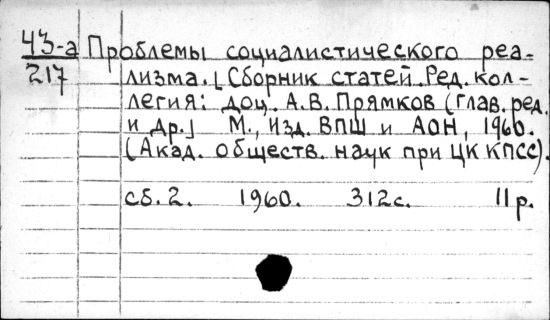 43-а Проблемы социалистического реа-
217 лизма. [Сборник статей. Ред. кол-
легия: доц. А. В. Прямков (глав. ред.
и др.] М., Изд. ВПШ и АОН, 1960.
(Акад. обществ. наук при ЦК КПСС).
сб. 2. 1960. 312с. 11 р.